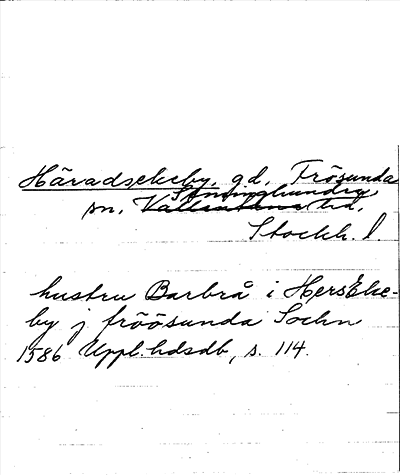 Häradsekeby, gd, Frösunda
Seminghundra
sn, Vallentuna hd,
Stockh. l.
hustru Barbrå i HersEke-
by j fröösunda Sochn
1586 Uppl. hdsdb, s. 114.